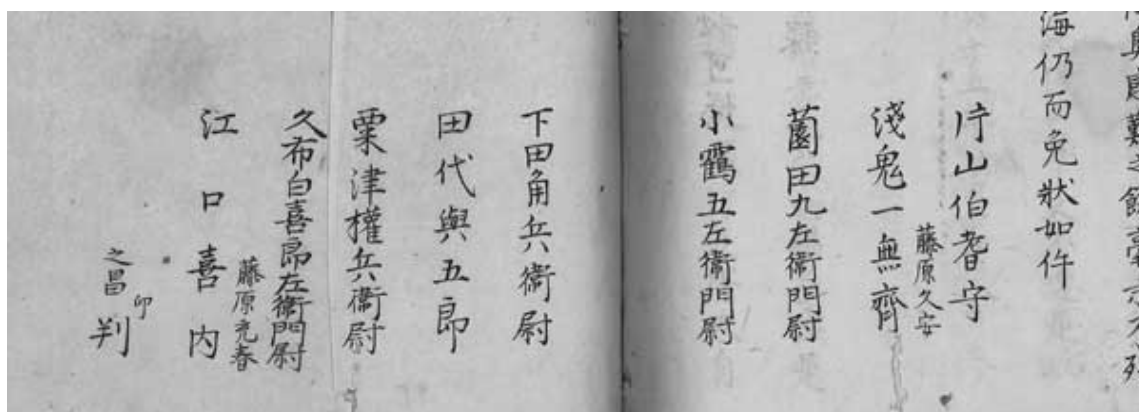 海仍而免状如件
片山伯耆守
藤原久安
淺鬼一無齊
薗田九左衛門尉
小鶴五左衛門尉
下田角兵衛尉
田代與五郎
粟津權兵衛尉
久布白喜郎左衛門尉
藤原充春
江口喜内
之昌
印
判